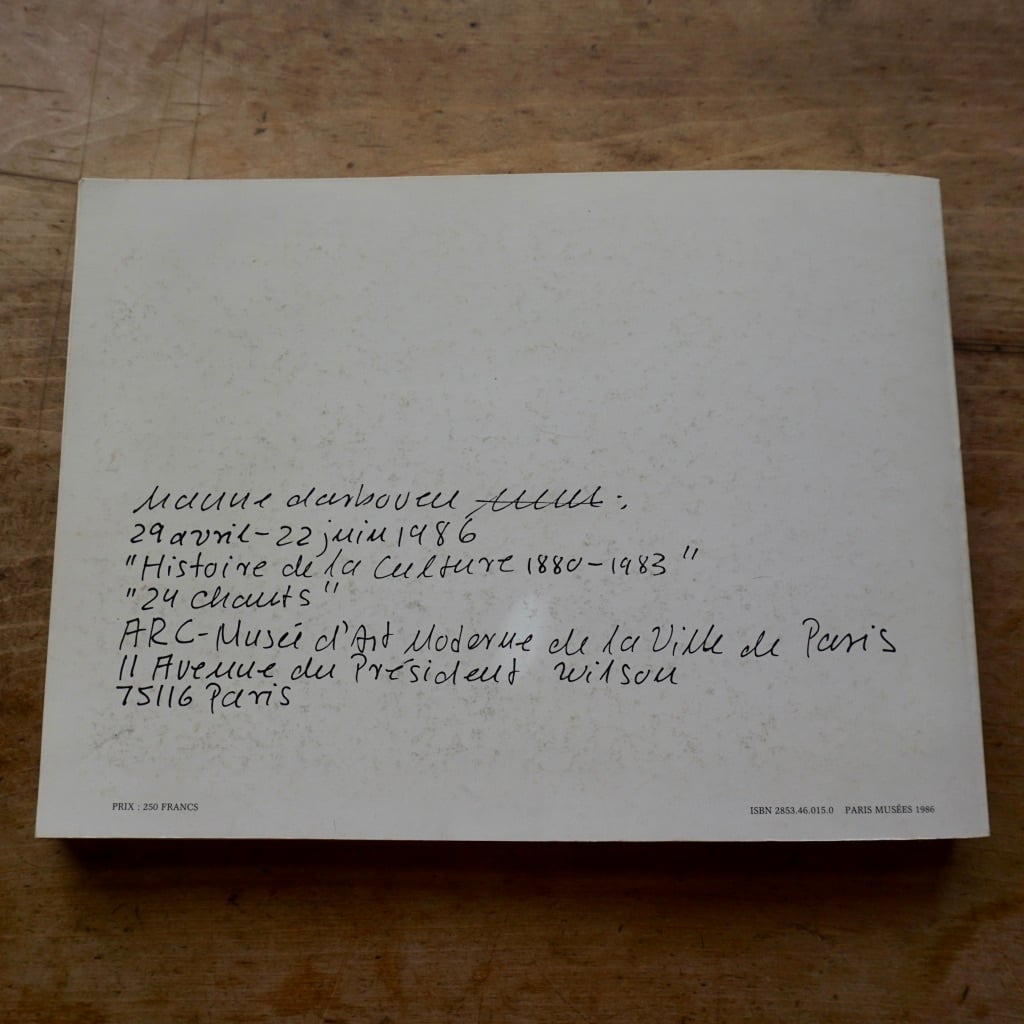 hanne darboven
29 avril - 22 juin 1986
"Histoire de la Culture 1880 - 1983"
"24 Chants"
ARC - Musée d'Art Moderne de la Ville de Paris
11 Avenue du Président Wilson
75116 Paris
PRIX : 250 FRANCS
ISBN 2853.46.015.0 PARIS MUSÉES 1986